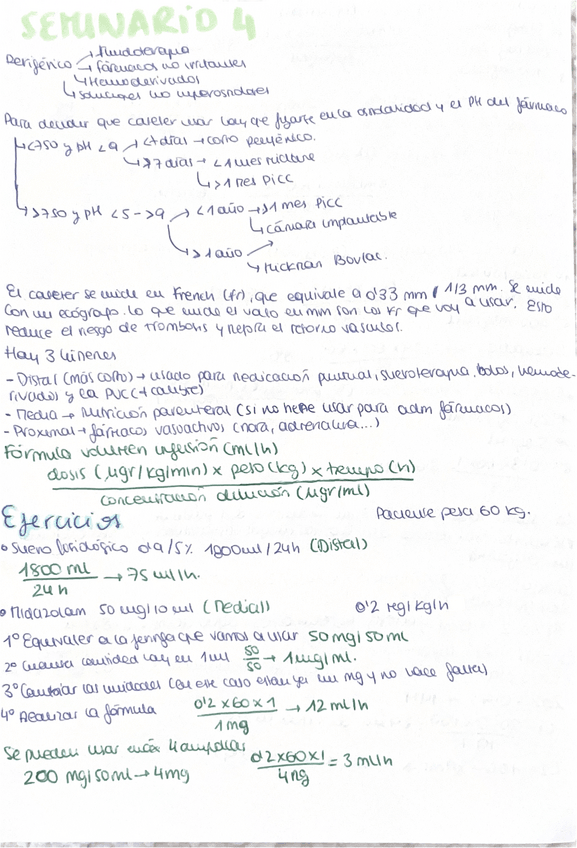 SEMINARIO 4
Periférico → fluidoterapia
→ fármacos no irritantes
→ Hemoderivados
→ soluciones no hiperosmolares
Para decidir que cateter usar hay que fijarse en la osmolaridad y el PH del fármaco
→ <750 y pH <9 → <7 días → corto periférico.
→ >7 días → <1 mes midline
→ >1 mes Picc
→ >750 y pH <5 - >9 → <1 año → >1 mes Picc
→ cámara implantable
→ >1 año →
→ Hickman Boviac.
El cateter se mide en French (fr), que equivale a 0'33 mm / 1/3 mm. Se mide
con un ecógrafo. Lo que mide el vaso en mm son los Fr que voy a usar. Esto
reduce el riesgo de trombosis y mejora el retorno vascular.
Hay 3 lúmenes
- Distal (más corto) → usado para medicación puntual, sueroterapia, bolos, hemode-
rivados y la PVC (+ calibre)
- Media → Nutrición parenteral (si no tiene usar para adm fármacos)
- Proximal → fármacos vasoactivos (nora, adrenalina...)
Fórmula volumen infusión (ml/h)
dosis (µgr/kg/min) x peso (kg) x tiempo (h)
concentración dilución (µgr/ml)
Ejercicios
Paciente pesa 60 kg.
• Suero fisiológico 0'9/5% 1800 ml/24h (Distal)
1800 ml
24 h → 75 ml/h.
• Midazolam 50 mg/10 ml (Medial) 0'2 mg/kg/h
1º Equivaler a la jeringa que vamos a usar 50 mg/50 ml
2º Cuanta cantidad hay en 1 ml 50/50 → 1 mg/ml.
3º Cambiar las unidades (en este caso están ya en mg y no hace falta)
4º Realizar la fórmula 0'2 x 60 x 1 → 12 ml/h
1 mg
Se pueden usar 4 ampollas
200 mg/50 ml → 4mg 0'2 x 60 x 1 = 3 ml/h
4 mg